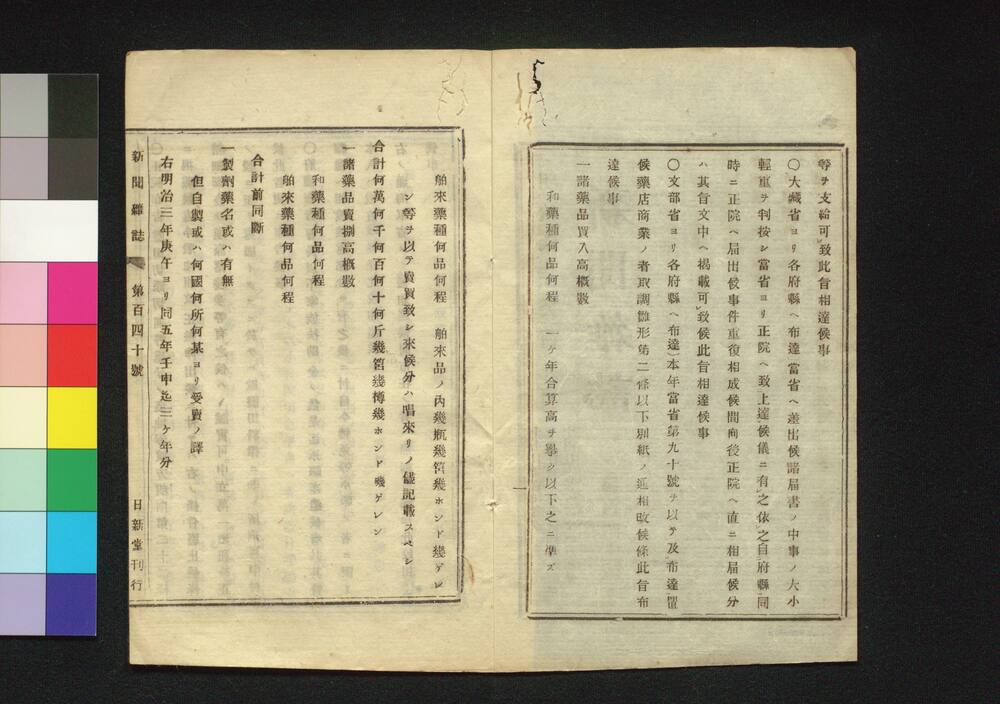 等ヲ支給可致此旨相達候事
〇大藏省ヨリ各府縣ヘ布達當省ヘ差出候諸届書ノ中事ノ大小
輕重ヲ判按シ當省ヨリ正院ヘ致上達候儀ニ有之依之自府縣同
時ニ正院ヘ届出候事件重復相成候間向後正院ヘ直ニ相届候分
ハ其旨文中ヘ掲載可致候此旨相達候事
〇文部省ヨリ各府縣ヘ布達本年當省第九十號ヲ以テ及布達置
候藥店商業ノ者取調雛形第二條以下別紙ノ通相改候條此旨布
達候事
一諸藥品買入高概數
和藥種何品何程 一ケ年合算高ヲ擧ク以下之ニ準ズ
舶來藥種何品何程 舶來品ノ内幾瓶幾筥幾ホンド幾ゲレ
ン等ヲ以テ賣買致シ來候分ハ唱來リノ儘記載スベシ
合計何萬何千何百何十何斤幾筥幾樽幾ホンド幾ゲレン
一諸藥品賣捌高概數
和藥種何品何程
舶來藥種何品何程
合計前同斷
一製劑藥名或ハ有無
但自製或ハ何國何所何某ヨリ受賣ノ譯
右明治三年庚午ヨリ同五年壬申迄三ケ年分
新聞雜誌 第百四十號 日新堂刊行